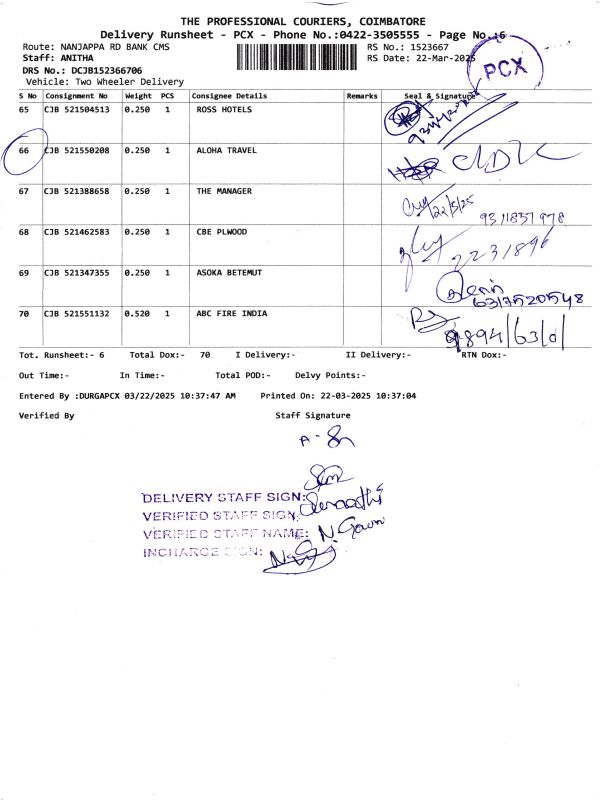 THE PROFESSIONAL COURIERS, COIMBATORE
Delivery Runsheet - PCX - Phone No.:0422-3505555 - Page No.:6
Route: NANJAPPA RD BANK CMS
RS No.: 1523667
Staff: ANITHA
RS Date: 22-Mar-2025
PCX
DRS No.: DCJB152366706
Vehicle: Two Wheeler Delivery
S No Consignment No Weight PCS Consignee Details Remarks Seal & Signature
65 CJB 521504513 0.250 1 ROSS HOTELS
66 CJB 521550208 0.250 1 ALOHA TRAVEL
67 CJB 521388658 0.250 1 THE MANAGER 22/3/25 9311837978
68 CJB 521462583 0.250 1 CBE PLWOOD 2231896
69 CJB 521347355 0.250 1 ASOKA BETEMUT 6317520548
70 CJB 521551132 0.520 1 ABC FIRE INDIA 9894/63/0/
Tot. Runsheet:- 6 Total Dox:- 70 I Delivery:- II Delivery:- RTN Dox:-
Out Time:- In Time:- Total POD:- Delvy Points:-
Entered By :DURGAPCX 03/22/2025 10:37:47 AM Printed On: 22-03-2025 10:37:04
Verified By Staff Signature
DELIVERY STAFF SIGN:
VERIFIED STAFF SIGN:
VERIFIED STAFF NAME: N Gowri
INCHARGE SIGN: